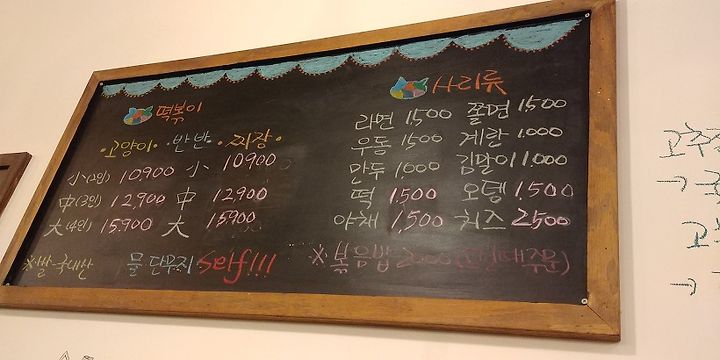 떡볶이
·고양이· 반반 ·짜장·
小(2인) 10900 小 10900
中(3인) 12,900 中 12,900
大(4인) 15,900 大 15900
※쌀-국내산 물 단무지 Self!!!
사리류
라면 1,500 쫄면 1,500
우동 1500 계란 1,000
만두 1,000 김말이 1,000
떡 1,500 오뎅 1,500
야채 1,500 치즈 2500
※볶음밥 2000
고추
→
고
→